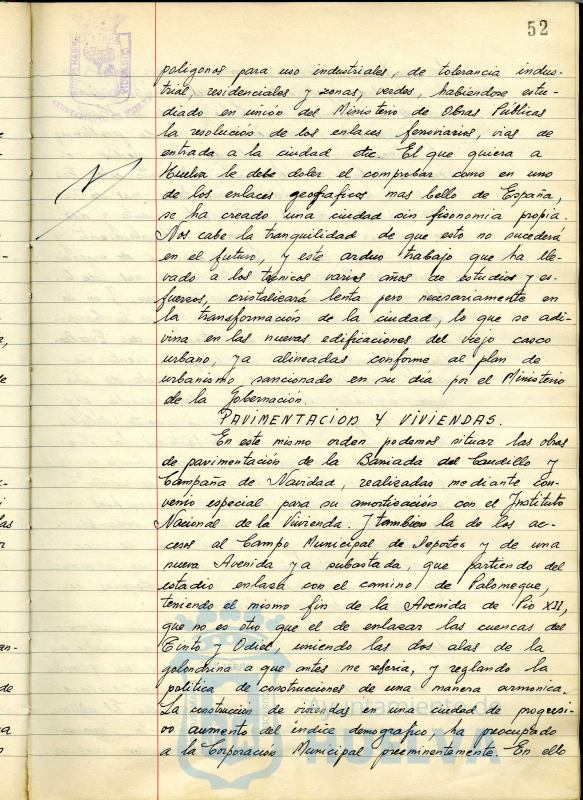 52
poligonos para uso industriales, de tolerancia indus-
trial, residenciales y zonas, verdes, habiendose estu-
diado en unión del Ministerio de Obras Públicas
la resolución de los enlaces ferroviarios, vias de
entrada a la ciudad etc. El que quiera a
Huelva le debe doler el comprobar como en uno
de los enlaces geograficos mas bello de España,
se ha creado una ciudad sin fisonomia propia.
Nos cabe la tranquilidad de que esto no sucederá
en el futuro, y este arduo trabajo que ha lle-
vado a los tecnicos varios años de estudios y es-
fuerzos, cristalizará lenta pero necesariamente en
la transformación de la ciudad, lo que se adi-
vina en las nuevas edificaciones del viejo casco
urbano, ya alineadas conforme al plan de
urbanismo sancionado en su dia por el Ministerio
de la Gobernación.
PAVIMENTACION Y VIVIENDAS.
En este mismo orden podemos situar las obras
de pavimentación de la Barriada del Caudillo y
Campaña de Navidad, realizadas mediante con-
venio especial para su amortización con el Instituto
Nacional de la Vivienda. Y tambien la de los ac-
cesos al Campo Municipal de Deportes y de una
nueva Avenida ya subastada, que partiendo del
estadio enlaza con el camino de Palomeque,
teniendo el mismo fin de la Avenida de Pio XII,
que no es otro que el de enlazar las cuencas del
Tinto y Odiel, uniendo las dos alas de la
golondrina a que antes me referia, y reglando la
politica de construcciones de una manera armonica.
La construccion de viviendas en una ciudad de progresi-
vo aumento del indice demografico, ha preocupado
a la Corporación Municipal preeminentemente. En ello